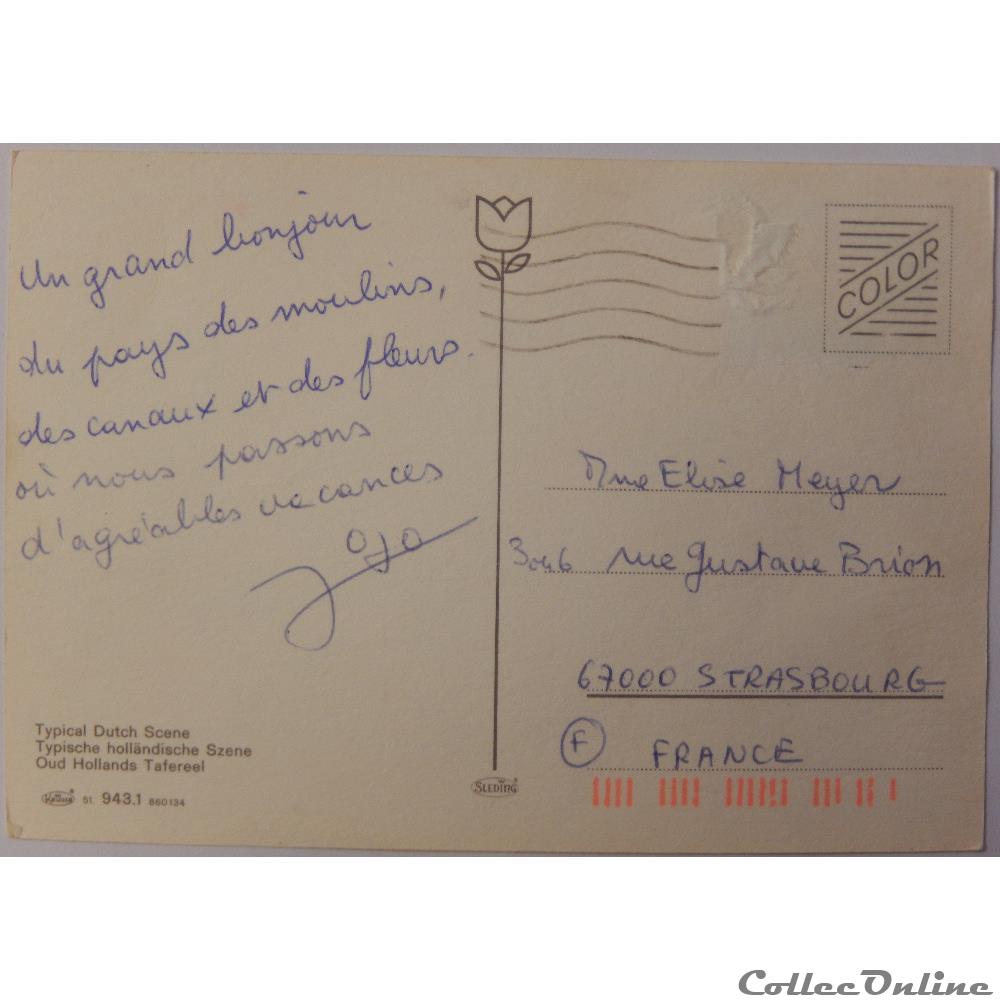 Un grand bonjour
du pays des moulins,
des canaux et des fleurs.
où nous passons
d'agréables vacances
Jojo
Typical Dutch Scene
Typische holländische Szene
Oud Hollands Tafereel
st. 943.1 860134
SLEDING
COLOR
Mme Elise Meyer
rue Gustave Brion
67000 STRASBOURG
F FRANCE
CollecOnline